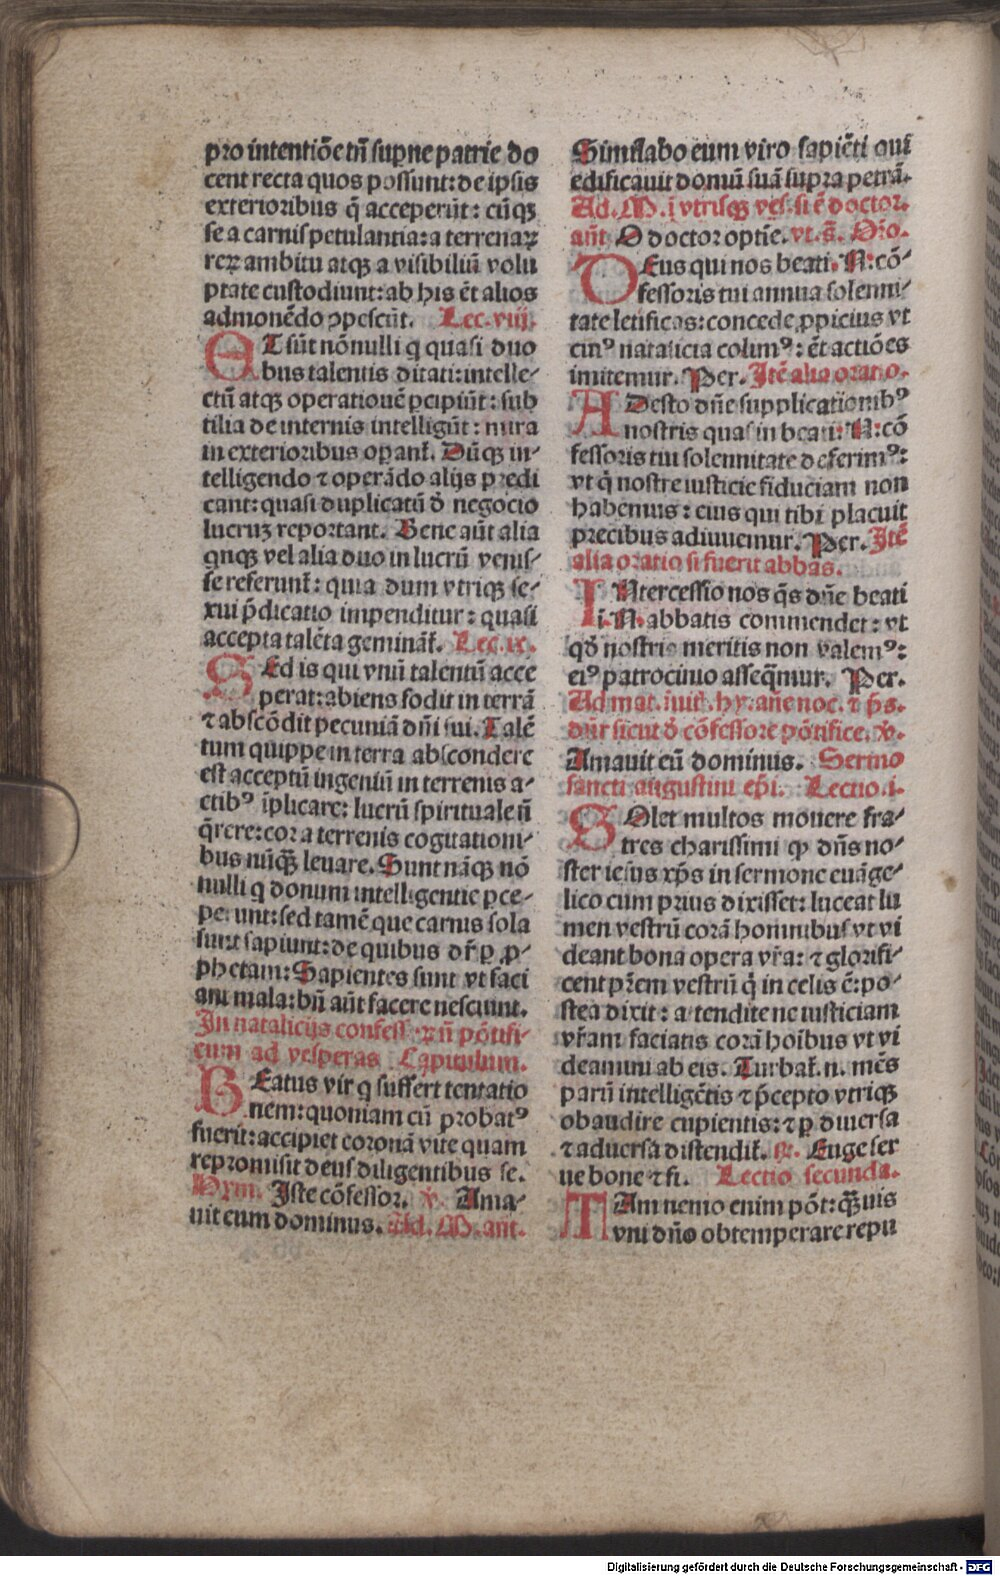 pro intentiõe tñ supne patrie do
cent recta quos possunt: de ipsis
exterioribus q̃ acceperũt: cũqȝ
se a carnis petulantia: a terrenaꝝ
reꝝ ambitu atqȝ a visibiliũ volu
ptate custodiunt: ab his ẽt alios
admonẽdo ꝯpescũt. Lec. viij.
ET sũt nõnulli q quasi duo
bus talentis ditati: intelle-
ctũ atqȝ operationẽ ꝑcipiũt: sub
tilia de internis intelligũt: mira
in exterioribus oꝑant̃. Dũqȝ in-
telligendo ⁊ operãdo alijs predi
cant: quasi duplicatũ õ negocio
lucruȝ reportant. Bene aũt alia
qnqȝ vel alia duo in lucrũ venis-
se referunt̃: quia dum vtriqȝ se-
xui p̃dicatio impenditur: quasi
accepta talẽta geminãt̃. Lec. ix.
SEd is qui vnũ talentũ acce
perat: abiens fodit in terrã
⁊ abscõdit pecuniã dñi sui. Talẽ
tum quippe in terra abscondere
est acceptũ ingeniũ in terrenis a-
ctibꝰ ĩplicare: lucrũ spirituale ñ
q̃rere: cor a terrenis cogitationi-
bus nũqᷓȝ leuare. Sunt nãqȝ nõ
nulli q donum intelligentie ꝑce-
perunt: sed tamẽ que carnis sola
sunt sapiunt: de quibus dr̃ ꝑ ꝓ-
phetam: Sapientes sunt vt faci
ant mala: bñ aũt facere nesciunt.
In natalicijs confess. ꝛ ñ põtifi-
cum ad vesperas Capitulum.
BEatus vir q suffert tentatio
nem: quoniam cũ probatꝰ
fuerit: accipiet coronã vite quam
repromisit deus diligentibus se.
Hym. Iste cõfessor. ℣. Ama-
uit eum dominus. Ad. M. añt.
Similabo eum viro sapiẽti qui
edificauit domũ suã supra petrã.
Ad. M. i vtrisqȝ ves. si ẽ doctor.
añt O doctor optĩe. vt. s̃. Orõ.
DEus qui nos beati. N: cõ-
fessoris tui annua solenni-
tate letificas: concede ꝓpicius vt
cuiꝰ natalicia colimꝰ: ẽt actiões
imitemur. Per. Itẽ alia oratio.
ADesto dñe supplicationibꝰ
nostris quas in beati: N: cõ
fessoris tui solennitate deferimꝰ:
vt q̃ nostre iusticie fiduciam non
habemus: eius qui tibi placuit
precibus adiuuemur. Per. Itẽ
alia oratio si fuerit abbas.
INtercessio nos q̃s dñe beati
i. N. abbatis commendet: vt
qđ nostris meritis non valemꝰ:
eiꝰ patrocinio asseq̃mur. Per.
Ad mat. inuit. hy. añe noc. ⁊ p̃s.
dñr sicut õ cõfessore põtifice. ℣.
Amauit eũ dominus. Sermo
sancti augustini ep̃i. Lectio. i.
SOlet multos mouere fra-
tres charissimi ꝙ dñs no-
ster iesus xp̃s in sermone euãge-
lico cum prius dixisset: luceat lu
men vestrũ corã hominibus vt vi
deant bona opera vr̃a: ⁊ glorifi-
cent pr̃em vestrũ q̃ in celis ẽ: po-
stea dixit: attendite ne iusticiam
vr̃am faciatis corã hoĩbus vt vi
deamini ab eis. Turbat̃. n. mẽs
parũ intelligẽtis ⁊ p̃cepto vtriqȝ
obaudire cupientis: ⁊ ꝑ diuersa
⁊ aduersa distendit̃. ℟. Euge ser
ue bone ⁊ fi. Lectio secunda.
TAm nemo enim põt: qᷓȝuis
vni dño obtemperare repu
Digitalisierung gefördert durch die Deutsche Forschungsgemeinschaft - DFG